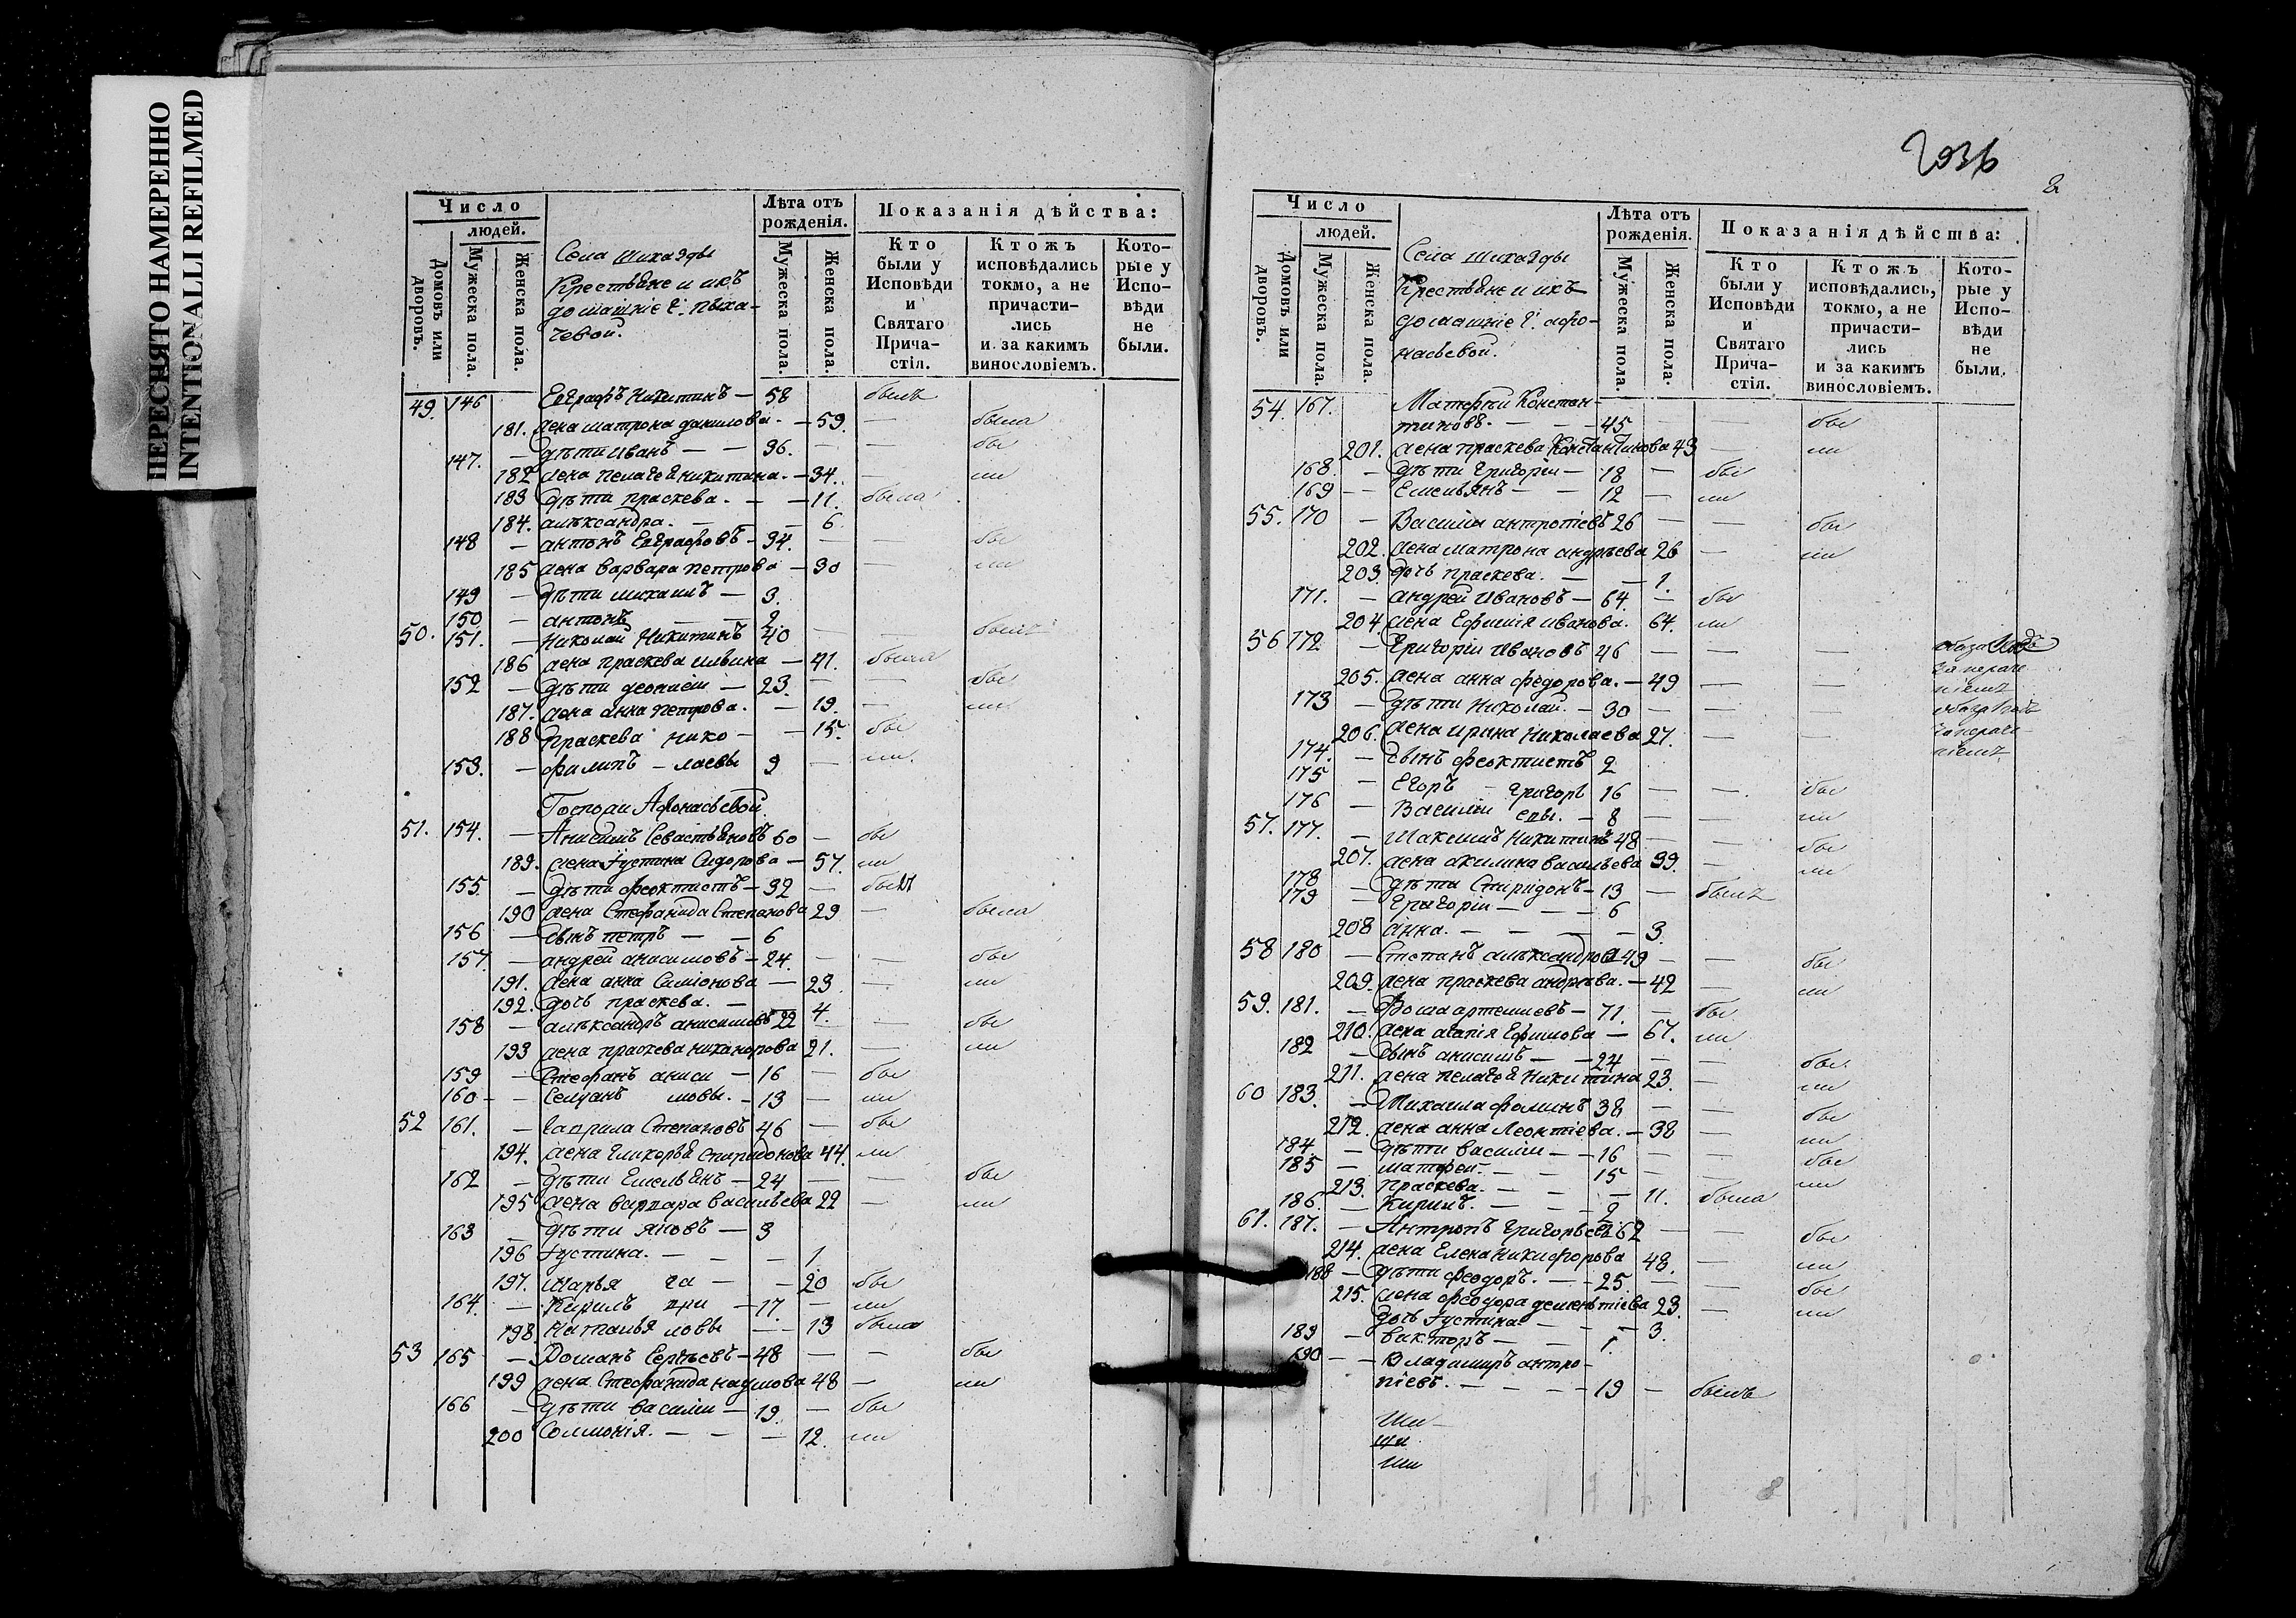 ПЕРЕСНЯТО НАМЕРЕННО
INTENTIONALLI REFILMED
Число
людей.
Домовъ или дворовъ.
Мужеска пола.
Женска пола.
Лѣта отъ рожденія.
Мужеска пола.
Женска пола.
Показанія дѣйства:
Кто были у Исповѣди и Святаго Прича-стія.
Ктожъ исповѣдались токмо, а не причасти-лись и за какимъ винословіемъ.
Кото-рые у Испо-вѣди не были.
Села
Крестьяне и ихъ
домашніе Г.
49. 146 Евграфъ Никитинъ — 58 былъ
181. жена матрона данилова. — 59. — была
147. — дѣти иванъ — — 36. — — бы
182 жена пелагея никитина. — 34. — ли
183 дѣти праскева. — — 11. была
184. александра. — — — 6.
148 — антонъ Евграфовъ — 34. — — бы
185 жена варвара петрова — 30 — ли
149 — дѣти михаилъ — 3.
150 — антонъ — — 2
50. 151. — Николай Никитинъ 40 — — былъ
186 жена праскева ильина — 41. была
152 — дѣти — 23. — — бы
187. жена анна петрова. — 19. — ли
188 праскева нико — — 15. бы
153. — филипъ — лаевы 9 — ли.
Госпожи Афонасьевой
51. 154. — Анисимъ Севастьяновъ 60 — бы
189. жена Іустина Сидорова — 57. ли
155 — дѣти феоктистъ — 32 — былъ
190 жена Стефанида Степанова 29 — была
156 — сынъ петръ — — 6
157. — андрей анисимовъ — 24. — — бы
191. жена анна Симіонова — 23. — ли
192. дочь праскева. — — 4.
158 — александръ анисимовъ 22 — — бы
193 жена праскева никанорова 21. — ли
159 — Стефанъ аниси — 16 — бы
160 — — Селуанъ мовы. — 13 — ли
52 161. — гаврила Степановъ 46 — бы
194. жена гликерья Спиридонова 44. ли
162 — дѣти Емельянъ — 24 — — бы
195 жена варвара васильева 22 — ли
163 — дѣти яковъ — 3
196 Іустина. — — — 1.
197. Марья га — — 20 бы
164. — Кирилъ ври — 17. — ли
198. Наталья ловы — — 13 была
53 165 — Романъ Сергѣевъ — 48 — — бы
199 жена Стефанида наумова 48 — ли
166 — дѣти василіи — 19. — бы
200 Соломонія. — — — 12. ли
2
Число
людей.
Домовъ или дворовъ.
Мужеска пола.
Женска пола.
Лѣта отъ рожденія.
Мужеска пола.
Женска пола.
Показанія дѣйства:
Кто были у Исповѣди и Святаго Прича-стія.
Ктожъ исповѣдались, токмо, а не причасти-лись и за какимъ винословіемъ.
Кото-рые у Испо-вѣди не были.
Села
Крестьяне и ихъ
домашніе Г. афо-
насьевой.
54. 167. Матвѣй Констан-
тиновъ. — — — 45 — — бы
201. жена праскева Константинова 43 — ли
168. — дѣти григоріи — 18 — бы
169 — — Емельянъ — — 12 — ли
55. 170 — Василіи антропіевъ 26 — — бы
202. жена матрона андрѣева 26 — ли
203. дочь праскева. — — 1.
171. — андрей Ивановъ — 64. — бы
204. жена Ефимія иванова. 64. ли
56 172 — Григоріи Ивановъ 46 — — —
205. жена анна федорова. — 49 — —
173 — дѣти Николай. — 30 — — —
206. жена ирина Николаева 27. — —
174. — сынъ феоктистъ 2
175 — Егоръ — григорь 16 — — бы
176 — Василіи евы. — 8 — — ли
57. 177. — Максимъ Никитинъ 48 — — бы
207. жена акилина васильева 39. — ли
178 — дѣти Спиридонъ — 13 — былъ
179 — Григоріи — — — 6
208 анна. — — — — 3.
58 180 — Степанъ александровъ 49 — — бы
209. жена праскева андрѣева. — 42 — ли
59. 181. — Фома артемьевъ — 71. — бы
210. жена агапія Ефимова — 67. ли
182 — сынъ анисимъ — — 24 — — бы.
211. жена пелагея Никитина 23. — ли
60 183. — Михаила фоминъ 38 — — бы
212. жена анна Леонтіева. — 38 — ли
184. — дѣти василіи — — 16 — — бы
185 — матфеи. — — 15 — — ли
213. праскева. — — — 11. была
186. — Кирилъ. — — — 2
61. 187. — Антропъ Григорьевъ 62 — — бы
214. жена Елена Никифорова 48. — ли
188 — дѣти феодоръ. — — 25. — — бы
215. жена феодора дементіева 23. — ли
дочь Іустина. — — — 3.
189 — викторъ — — 1.
190 — — владимиръ антро-
піевъ. — — — — 19 — былъ